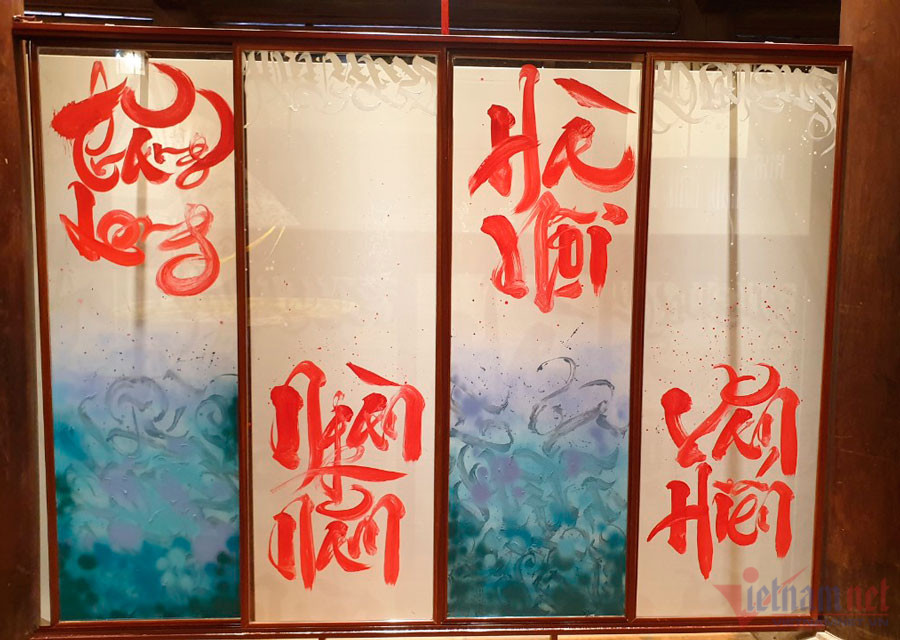 Thăng
Long
Ngàn
Năm
Hà
Nội
Văn
Hiến
Vietnamnet